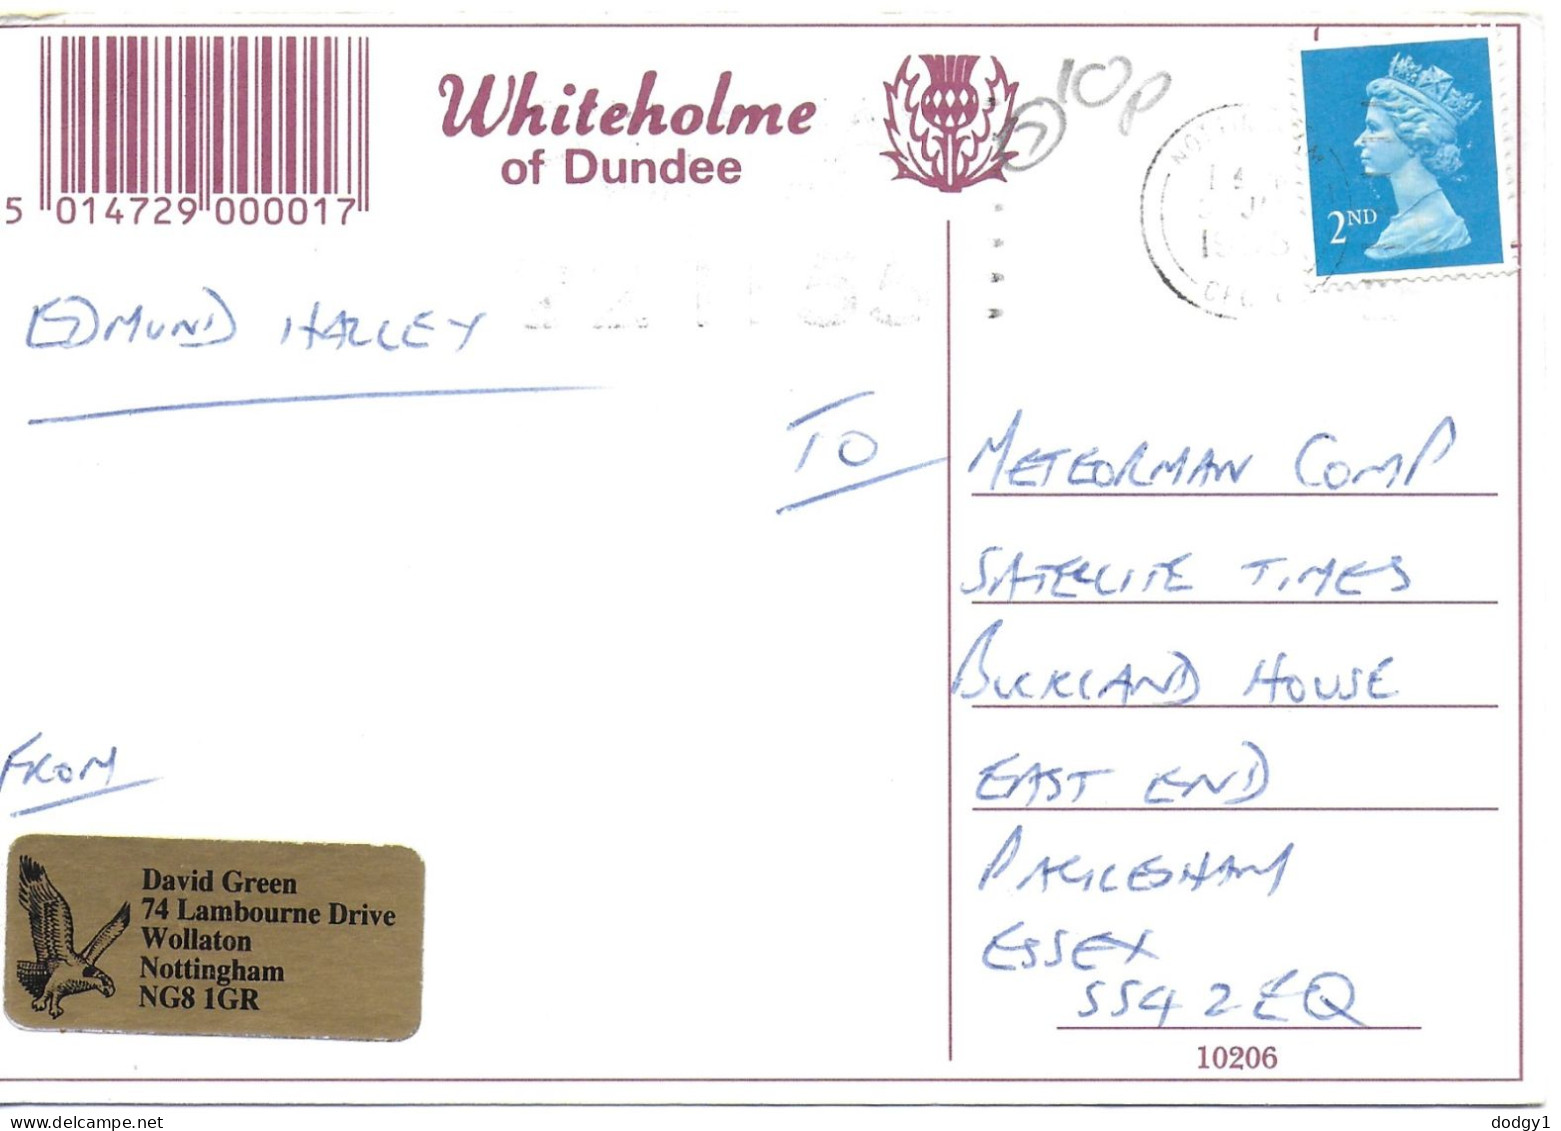 Whiteholme
of Dundee
10p
5 014729 000017
2ND
EDMUND HALLEY
TO
METEORMAN COMP
SATELLITE TIMES
BUCKLAND HOUSE
EAST END
PAGLESHAM
ESSEX
SS4 2EQ
10206
FROM
David Green
74 Lambourne Drive
Wollaton
Nottingham
NG8 1GR
dodgy1